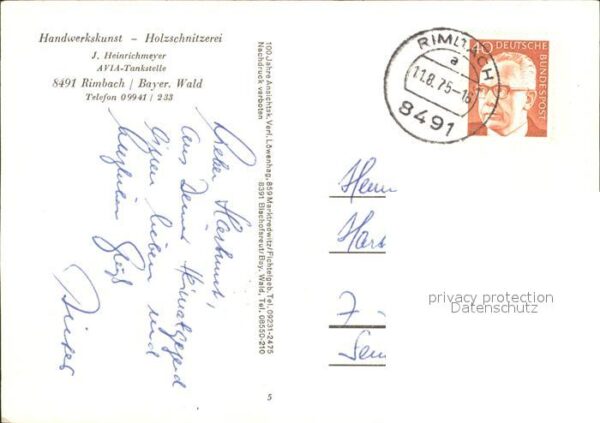 Handwerkskunst – Holzschnitzerei
J. Heinrichmeyer
AVIA-Tankstelle
8491 Rimbach / Bayer. Wald
Telefon 09941 / 233
100 Jahre Ansichtsk. Verl. Löwenhag, 859 Marktredwitz/Fichtelgeb. Tel. 09231-2475
Nachdruck verboten 8391 Bischofsreut/Bay. Wald, Tel. 08550-210
RIMBACH
a
11.8.75-16
8491
40 DEUTSCHE
BUNDESPOST
Lieber
aus Deiner Heimatgegend
einen lieben und
Gruß
Herrn
privacy protection
Datenschutz
5